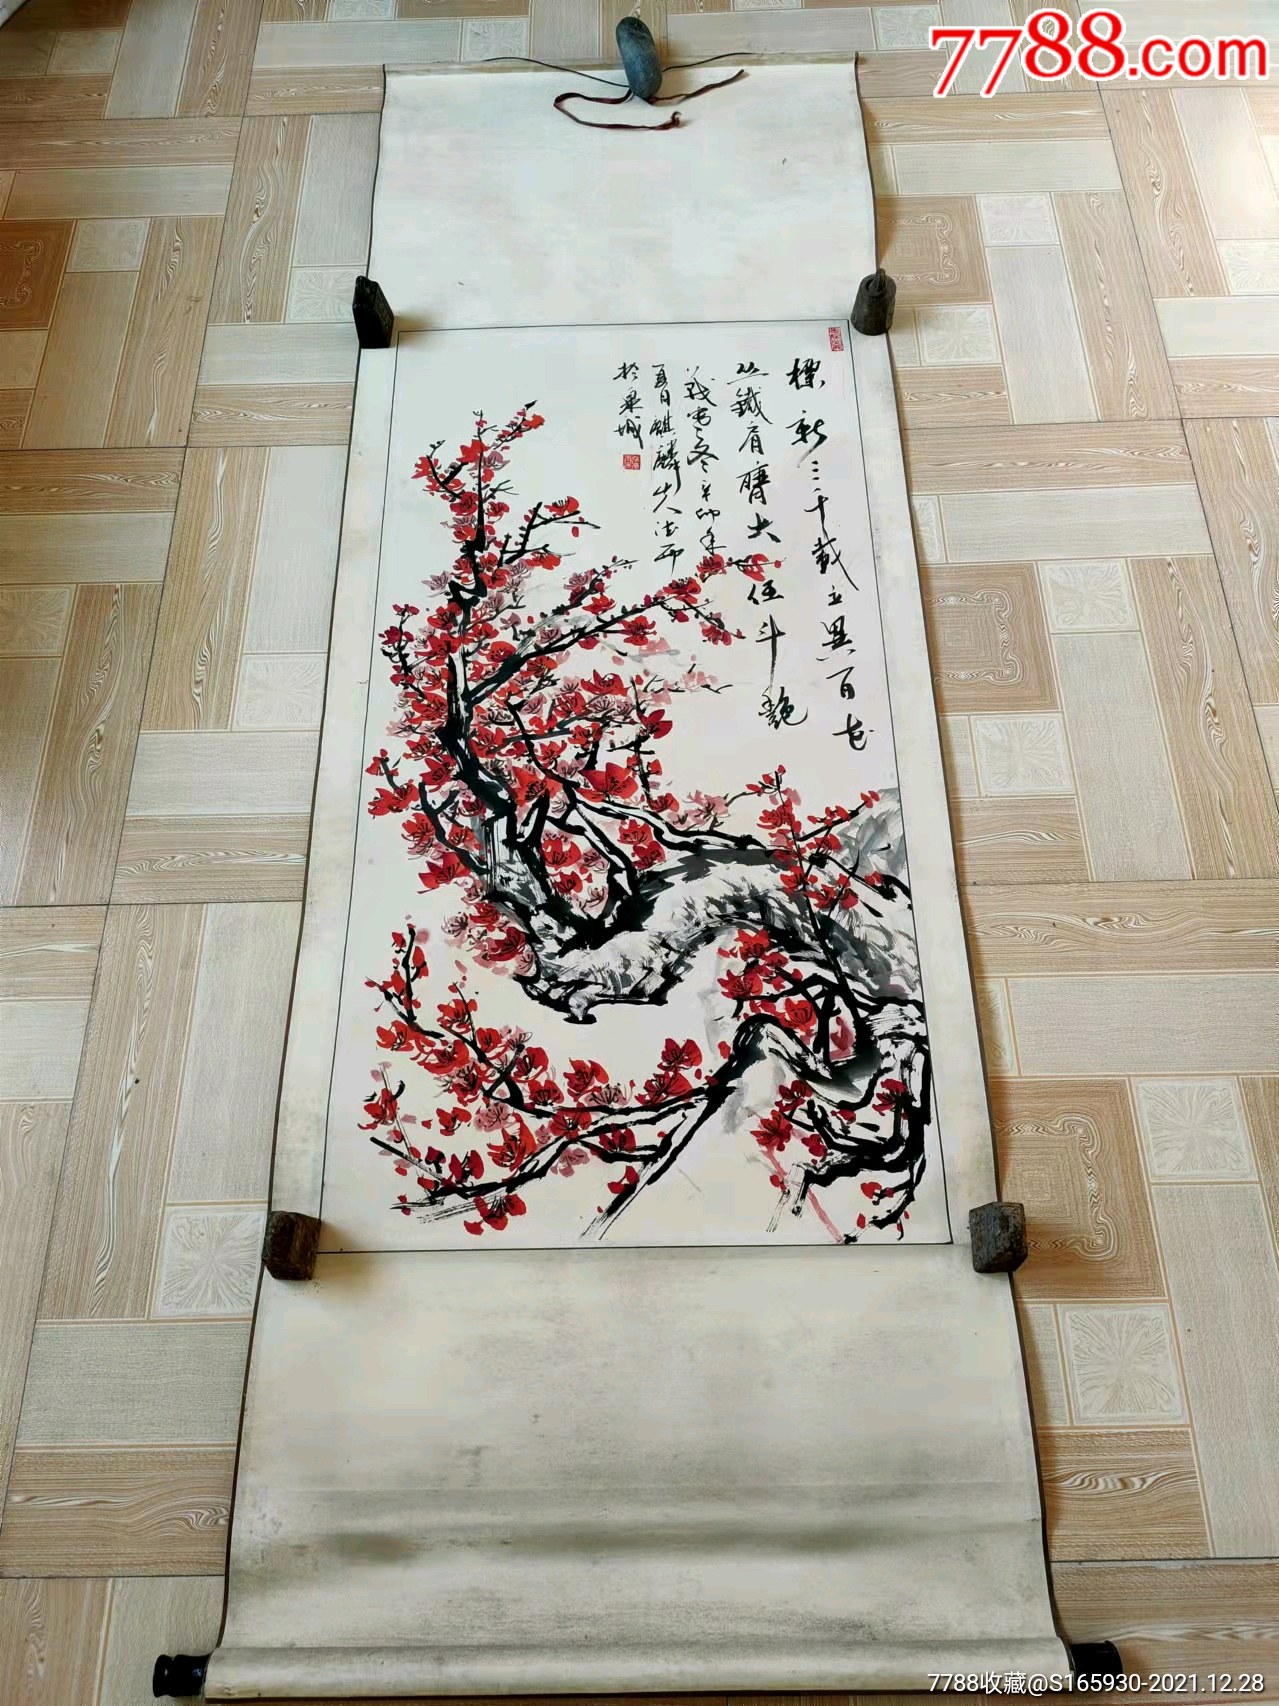 7788.com
標新三十載立異百花
丛鐵肩膺大任斗艷
義宙之冬辛卯年
夏日麒麟出法西
於泉城
7788收藏@S165930-2021.12.28